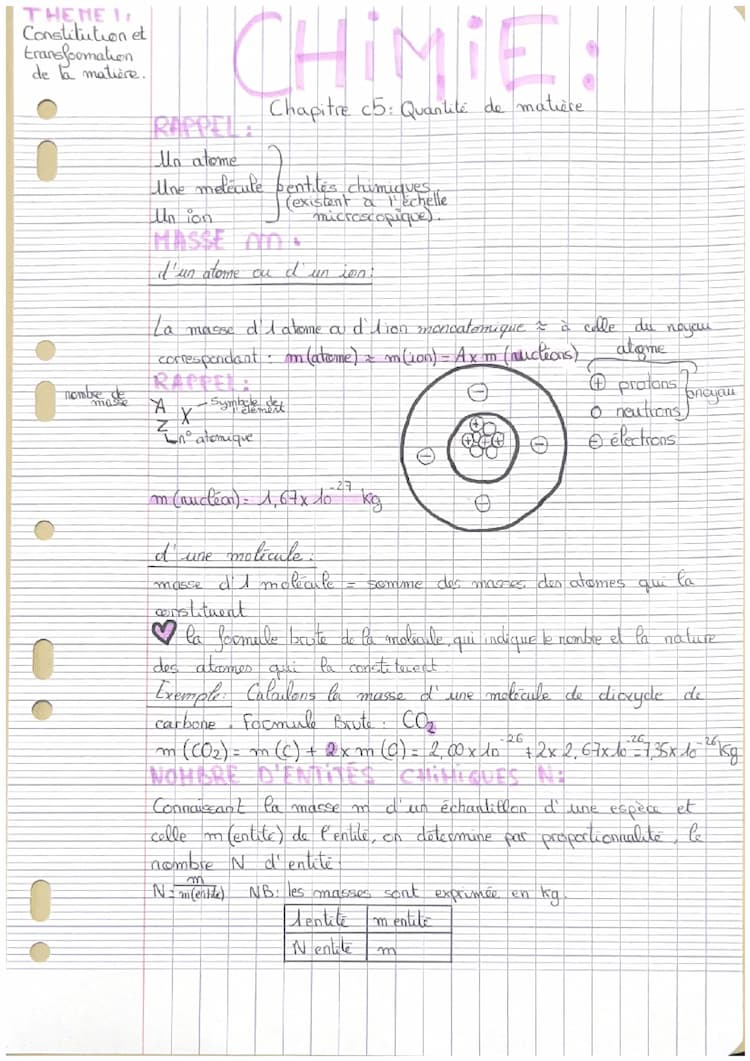 THEME 1:
Constitution et
transformation
de la matière.
CHiMiE:
Chapitre c5: Quantité de matière
RAPPEL:
Un atome
Une molécule } entités chimiques
(existent à l'échelle
Un ion
microscopique).
MASSE m.
d'un atome ou d'un ion:
La masse d'1 atome ou d'1 ion monoatomique ≈ à celle du noyau
correspondant : m(atome) ≈ m(ion) = A x m (nucléons)
atome
RAPPEL:
nombre de
masse
A
X - Symbole de
l'élément
Z
n° atomique
⊕ protons } noyau
O neutrons
⊖ électrons
m(nucléon) = 1,67 x 10⁻²⁷ kg
d'une molécule:
masse d'1 molécule = somme des masses des atomes qui la
constituent
♥ la formule brute de la molécule, qui indique le nombre et la nature
des atomes qui la constituent
Exemple: Calculons la masse d'une molécule de dioxyde de
carbone. Formule Brute: CO₂
m(CO₂) = m(C) + 2 x m(O) = 2,00 x 10⁻²⁶ + 2 x 2,67 x 10⁻²⁶ = 7,35 x 10⁻²⁶ kg
NOMBRE D'ENTiTÉS CHiMiQUES N:
Connaissant la masse m d'un échantillon d'une espèce et
celle m(entité) de l'entité, on détermine par proportionnalité, le
nombre N d'entité.
N = m/m(entité) NB: les masses sont exprimée en kg.
1 entité m entité
N entité m